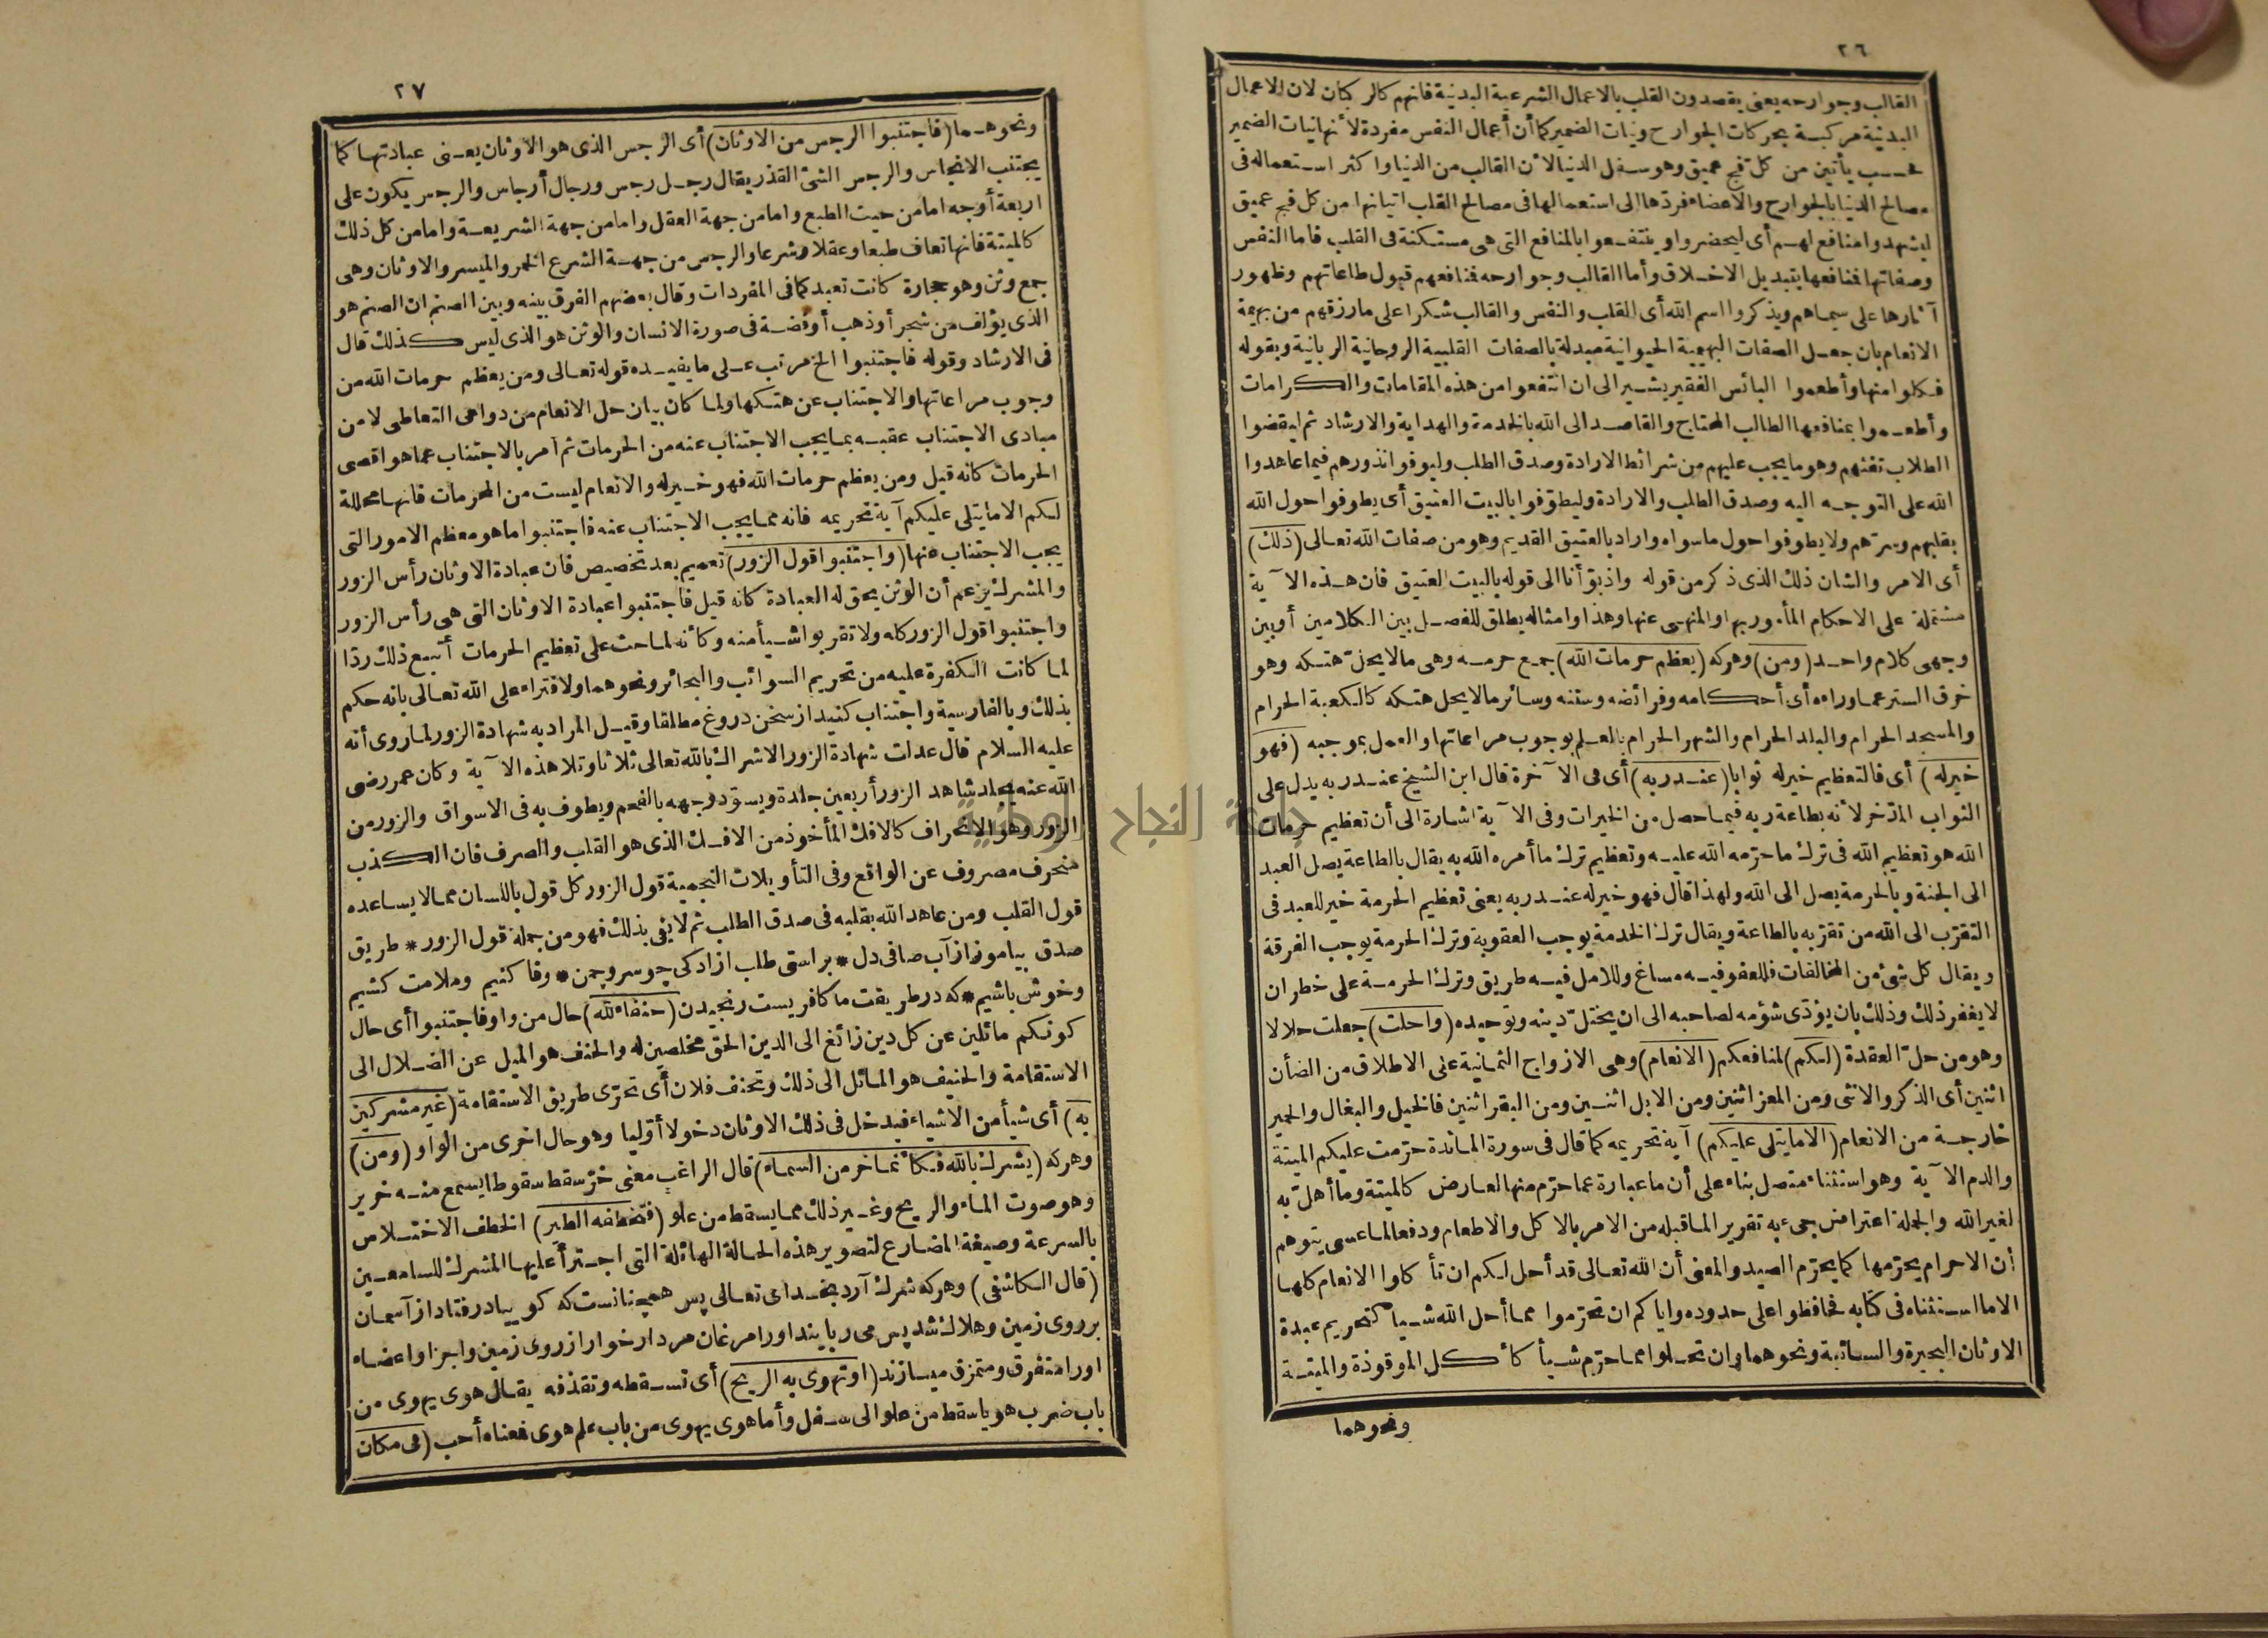 ٢٦
القالب وجوارحه يعنى يقصدون القلب بالاعمال الشرعية البدنية فانهم كالركبان لان الاعمال
البدنية مركبة بحركات الجوارح ونيات الضمير كما أن أعمال النفس مفردة لأنها نيات الضمير
فحسب يأتين من كل فج عميق وهو سفل الدنيا لأن القالب من الدنيا واكثر استعماله فى
مصالح الدنيا بالجوارح والأعضاء فردّها الى استعمالها فى مصالح القلب اتيانها من كل فج عميق
ليشهدوا منافع لهم أى ليحضروا وينتفعوا بالمنافع التى هى مستكنة فى القلب فاما النفس
وصفاتها فمنافعها بتبديل الاخلاق وأما القالب وجوارحه فمنافعهم قبول طاعاتهم وظهور
آثارها على سيماهم ويذكروا اسم الله أى القلب والنفس والقالب شكرا على ما رزقهم من بهيمة
الانعام بان جعل الصفات البهيمية الحيوانية مبدلة بالصفات القلبية الروحانية الربانية وبقوله
فكلوا منها وأطعموا البائس الفقير يشير الى ان انتفعوا من هذه المقامات والكرامات
وأطعموا بمنافعها الطالب المحتاج والقاصد الى الله بالخدمة والهداية والارشاد ثم ليقضوا
الطلاب تفثهم وهو ما يجب عليهم من شرائط الارادة وصدق الطلب وليوفوا نذورهم فيما عاهدوا
الله على التوجه اليه وصدق الطلب والارادة وليطوّفوا بالبيت العتيق أى يطوفوا حول الله
بقلبهم وسرّهم ولا يطوفوا حول ما سواه واراد بالعتيق القديم وهو من صفات الله تعالى (ذلك)
أى الامر والشان ذلك الذى ذكر من قوله واذ بوّأنا الى قوله بالبيت العتيق فان هذه الآية
مشتملة على الاحكام المأمور بها والمنهى عنها وهذا وامثاله يطلق للفصل بين الكلامين أو بين
وجهى كلام واحد (ومن) وهركه (يعظم حرمات الله) جمع حرمه وهى ما لا يحلّ هتكه وهو
خرق الستر عما وراءه أى أحكامه وفرائضه وسننه وسائر ما لا يحل هتكه كالكعبة الحرام
والمسجد الحرام والبلد الحرام والشهر الحرام بالعلم بوجوب مراعاتها والعمل بموجبه (فهو
خير له) أى فالتعظيم خير له ثوابا (عند ربه) أى فى الآخرة قال ابن الشيخ عند ربه يدل على
الثواب المدّخر لأنه بطاعة ربه فيما حصل من الخيرات وفى الآية اشارة الى أن تعظيم حرمات
الله هو تعظيم الله فى ترك ما حرّمه الله عليه وتعظيم ترك ما أمره الله به يقال بالطاعة يصل العبد
الى الجنة وبالحرمة يصل الى الله ولهذا قال فهو خير له عند ربه يعنى تعظيم الحرمة خير للعبد فى
التقرّب الى الله من تقرّبه بالطاعة ويقال ترك الخدمة يوجب العقوبة وترك الحرمة يوجب الفرقة
ويقال كل شئ من المخالفات فللعفو فيه مساغ وللامل فيه طريق وترك الحرمة على خطر ان
لا يغفر ذلك وذلك بان يؤدّى شؤمه لصاحبه الى ان يختلّ دينه وتوحيده (واحلت) جعلت حلالا
وهو من حلّ العقدة (لكم) لمنافعكم (الانعام) وهى الازواج الثمانية على الاطلاق من الضأن
اثنين أى الذكر والانثى ومن المعز اثنين ومن الابل اثنين ومن البقر اثنين فالخيل والبغال والحمير
خارجة من الانعام (الا ما يتلى عليكم) آية تحريمه كما قال فى سورة المائدة حرّمت عليكم الميتة
والدم الآية وهو استثناء متصل بناء على أن ما عبارة عما حرّم منها لعارض كالميتة وما أهلّ به
لغير الله والجملة اعتراض جىء به تقريرا لما قبله من الامر بالاكل والاطعام ودفعا لما عسى يتوهم
أن الاحرام يحرّمها كما يحرّم الصيد والمعنى أن الله تعالى قد أحل لكم ان تأكلوا الانعام كلها
الا ما استثناه فى كتابه فحافظوا على حدوده واياكم ان تحرّموا مما أحل الله شيأ كتحريم عبدة
الاوثان البحيرة والسائبة ونحوهما وان تحلوا مما حرّم شيأ كأكل الموقوذة والميتة
ونحوهما
٢٧
ونحوهما (فاجتنبوا الرجس من الاوثان) أى الرجس الذى هو الأوثان يعنى عبادتها كما
يجتنب الانجاس والرجس الشئ القذر يقال رجل رجس ورجال أرجاس والرجس يكون على
اربعة أوجه اما من حيث الطبع واما من جهة العقل واما من جهة الشريعة واما من كل ذلك
كالميتة فانها تعاف طبعا وعقلا وشرعا والرجس من جهة الشرع الخمر والميسر والاوثان وهى
جمع وثن وهو حجارة كانت تعبد كما فى المفردات وقال بعضهم الفرق بينه وبين الصنم ان الصنم هو
الذى يؤلف من شجر أو ذهب أو فضة فى صورة الانسان والوثن هو الذى ليس كذلك قال
فى الارشاد وقوله فاجتنبوا الخ مرتب على ما يفيده قوله تعالى ومن يعظم حرمات الله من
وجوب مراعاتها والاجتناب عن هتكها ولما كان بيان حل الانعام من دواعى التعاطى لا من
مبادى الاجتناب عقبه بما يجب الاجتناب عنه من الحرمات ثم أمر بالاجتناب عما هو اقصى
الحرمات كانه قيل ومن يعظم حرمات الله فهو خير له والانعام ليست من المحرمات فانها محللة
لكم الا ما يتلى عليكم آية تحريمه فانه مما يجب الاجتناب عنه فاجتنبوا ما هو معظم الامور التى
يجب الاجتناب عنها (واجتنبوا قول الزور) تعميم بعد تخصيص فان عبادة الاوثان رأس الزور
والمشرك يزعم أن الوثن يحق له العبادة كانه قيل فاجتنبوا عبادة الاوثان التى هى رأس الزور
واجتنبوا قول الزور كله ولا تقربوا شيأ منه وكأنه لما حث على تعظيم الحرمات أتبع ذلك ردّا
لما كانت الكفرة عليه من تحريم السوائب والبحائر ونحوهما ولافتراء على الله تعالى بانه حكم
بذلك وبالفارسية واجتناب كنيد از سخن دروغ مطلقا وقيل المراد به شهادة الزور لما روى أنه
عليه السلام قال عدلت شهادة الزور الاشراك بالله تعالى ثلاثا وتلا هذه الآية وكان عمر رضى
الله عنه يجلد شاهد الزور أربعين جلدة ويسوّد وجهه بالفحم ويطوف به فى الاسواق والزور من
الزور وهو الانحراف كالافك المأخوذ من الافك الذى هو القلب والصرف فان الكذب
منحرف مصروف عن الواقع وفى التأويلات النجمية قول الزور كل قول باللسان مما لا يساعده
قول القلب ومن عاهد الله بقلبه فى صدق الطلب ثم لا يفى بذلك فهو من جملة قول الزور * طريق
صدق بياموز از آب صافى دل * براستى طلب ازادكى چو سرو چمن * وفا كنيم وملامت كشيم
وخوش باشيم * كه در طريقت ما كافريست رنجيدن (حنفاء لله) حال من واو فاجتنبوا أى حال
كونكم مائلين عن كل دين زائغ الى الدين الحق مخلصين له والحنف هو الميل عن الضلال الى
الاستقامة والحنيف هو المائل الى ذلك وتحنف فلان أى تحرّى طريق الاستقامة (غير مشركين
به) أى شيأ من الاشياء فيدخل فى ذلك الاوثان دخولا أوّليا وهو حال اخرى من الواو (ومن)
وهركه (يشرك بالله فكأنما خر من السماء) قال الراغب معنى خرّ سقط سقوطا يسمع منه خرير
وهو صوت الماء والريح وغير ذلك مما يسقط من علو (فتخطفه الطير) الخطف الاختلاس
بالسرعة وصيغة المضارع لتصوير هذه الحالة الهائلة التى اجترأ عليها المشرك للسامعين
(قال الكاشفى) وهركه شرك آرد بخداى تعالى پس همچنانست كه كوييا در فتاد از آسمان
بر روى زمين وهلاك شد پس مى ربايند اورا مرغان مردار خوار از روى زمين واجزا واعضاء
اورا متفرق ومتمزق ميسازند (او تهوى به الريح) أى تسقطه وتقذفه يقال هوى يهوى من
باب ضرب هويا سقط من علو الى سفل وأما هوى يهوى من باب علم هوى فمعناه أحب (فى مكان
جامعة النجاح الوطنية